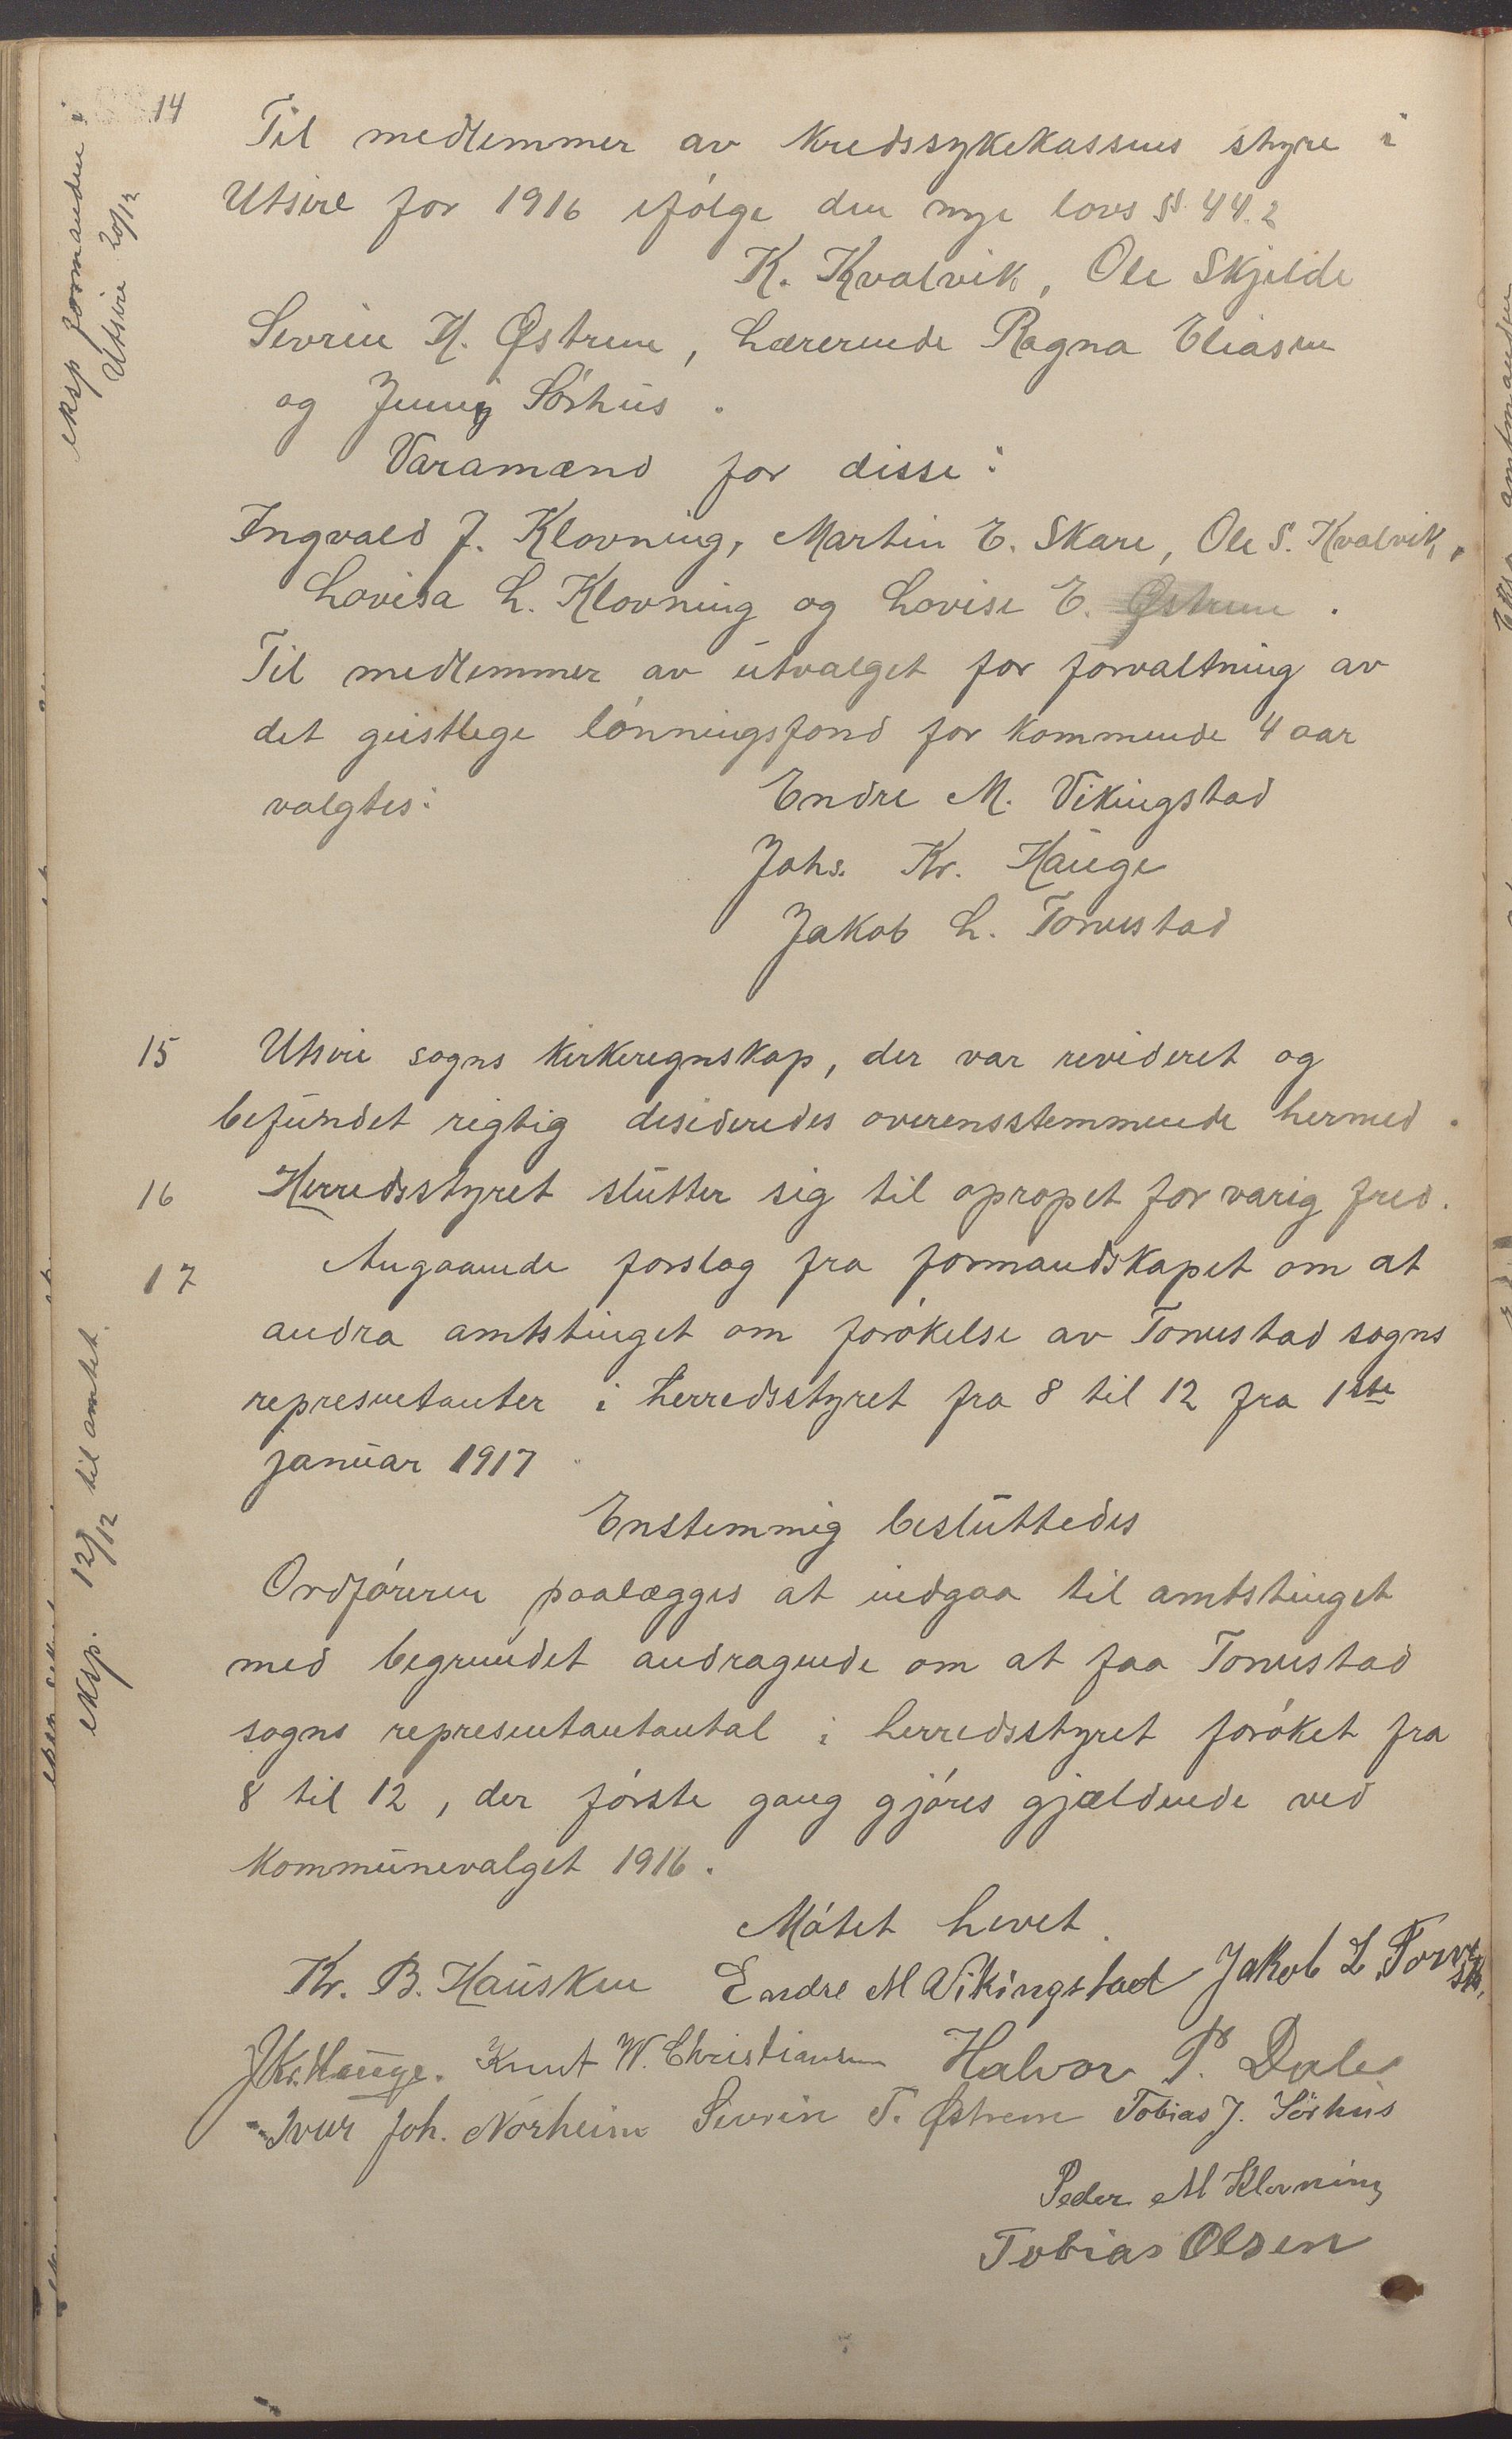 14
Til medlemmer av kredssykekassens styre i
Utsire for 1916 ifølge den nye lovs § 44.2
K. Kvalvik, Ole Skjelde
Sevrin H. Østrem, Lærerinde Ragna Eliasen
og Jenny Sørhus.
Varamænd for disse:
Ingvald J. Klovning, Martin E. Skare, Ole S. Kvalvik,
Lovisa L. Klovning og Lovise E. Østrem.
Til medlemmer av utvalget for forvaltning av
det geistlege lønningsfond for kommende 4 aar
valgtes: Endre M. Vikingstad
Johs. Kr. Hauge
Jakob L. Torvestad
eksp formanden i
Utsire 20/12
15 Utsire sogns kirkeregnskap, der var revideret og
befundet rigtig desideredes overensstemmende hermed.
16 Herredsstyret slutter sig til opropet for varig fred.
17 Angaaende forslag fra formandskapet om at
andra amtstinget om forøkelse av Torvestad sogns
representanter i herredsstyret fra 8 til 12 fra 1ste
januar 1917
Enstemmig besluttedes
Ordføreren paalægges at indgaa til amtstinget
med begrundet andragende om at faa Torvestad
sogns representantantal i herredsstyret forøket fra
8 til 12, der første gang gjøres gjældende ved
kommunevalget 1916.
eksp. 12/12 til amtet.
Møtet hevet.
Kr. B. Hausken Endre M Vikingstad Jakob L Torvestd.
J Kr. Hauge. Knut W. Christiansen Halvor P. Dale
Iver Joh. Nørheim Sevrin T. Østrem Tobias J. Sørhus
Peder M Klovning
Tobias Olsen